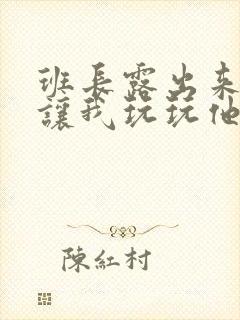 班長露出来
讓我玩玩他
陳紅村